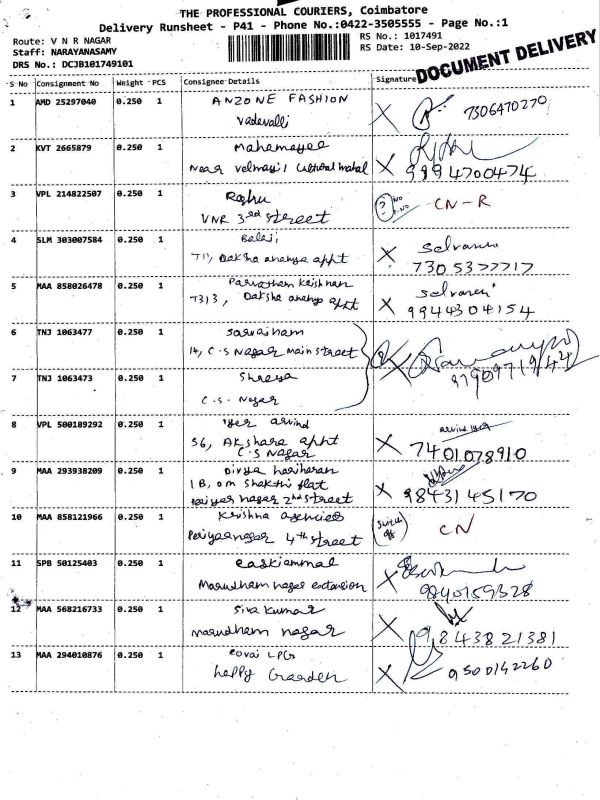 THE PROFESSIONAL COURIERS, Coimbatore
Delivery Runsheet - P41 - Phone No.:0422-3505555 - Page No.:1
Route: V N R NAGAR
Staff: NARAYANASAMY
DRS No.: DCJB101749101
RS No.: 1017491
RS Date: 10-Sep-2022
DOCUMENT DELIVERY
S No Consignment No Weight PCS Consignee Details Signature
1 AMD 25297040 0.250 1 ANZONE FASHION 7306470270
Vadavalli
2 KVT 2665879 0.250 1 Mahamayee
Near Cultural mahal 9994700474
3 VPL 214822507 0.250 1 Raghu ? NO CN-R
VNR 3rd street
4 SLM 303007584 0.250 1 Balaji Selvam
T11, Daksha ananya appt 7305377717
5 MAA 858026478 0.250 1 Parvatham Krishnan
T313, Daksha ananya appt 9944304154
6 TNJ 1063477 0.250 1
14, C.S Nagar main street
7 TNJ 1063473 0.250 1 Shreya
C.S. Nagar
8 VPL 500189292 0.250 1 Iyer arvind arvind Iyer
S6, Akshara appt 7401078910
C.S Nagar
9 MAA 293938209 0.250 1 Divya hariharan
1B, om shakthi flat
Periyar nagar 2nd street 9843145170
10 MAA 858121966 0.250 1 Krishna agencies CN
Periyar nagar 4th street
11 SPB 50125403 0.250 1 Easkiammal
Marudham nagar extension 9840159328
12 MAA 568216733 0.250 1 Siva Kumar
marudham nagar 9843821381
13 MAA 294010876 0.250 1 covai LPG
happy Garden 9500142260